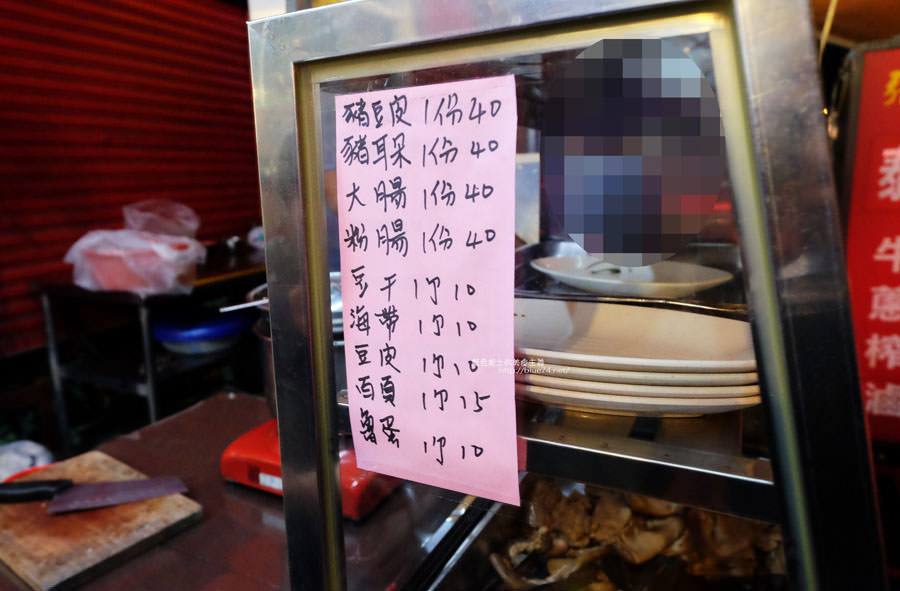 豬豆皮 1份 40
豬耳朵 1份 40
大腸 1份 40
粉腸 1份 40
豆干 1个 10
海帶 1个 10
豆皮 1个 10
百頁 1个 15
魯蛋 1个 10
http://blue74.net/
牛
蔥
榨
滷